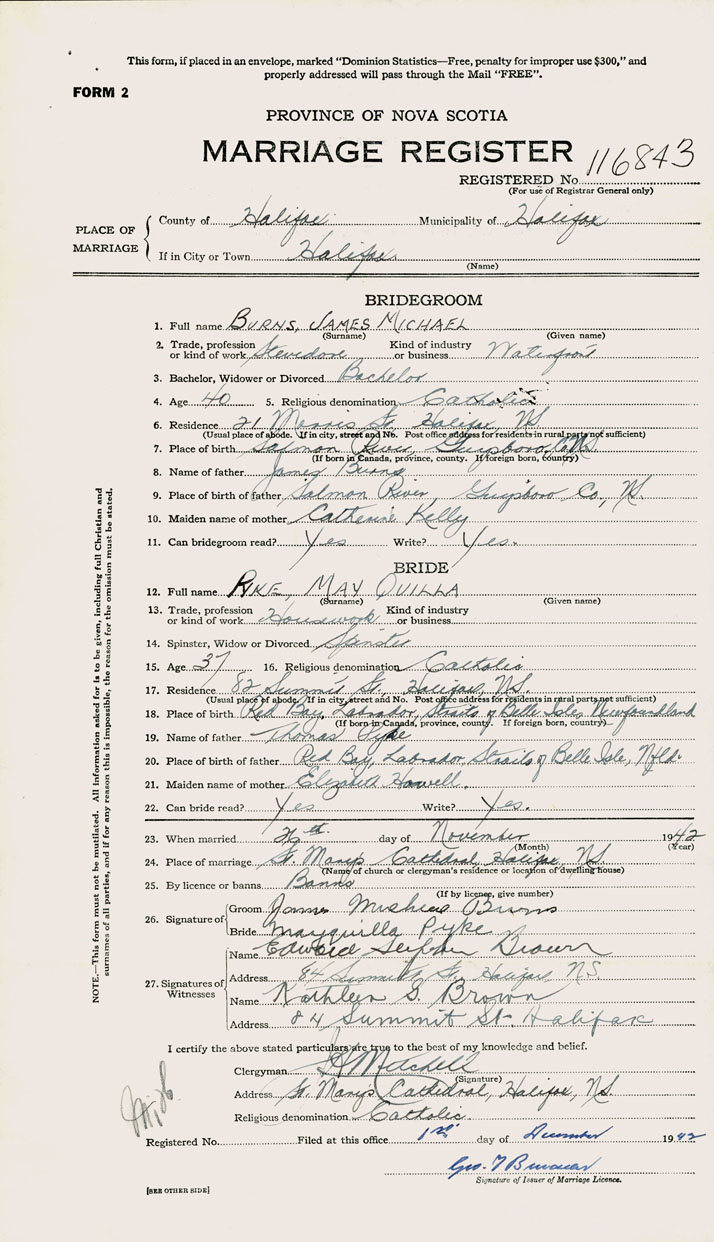 This form, if placed in an envelope, marked “Dominion Statistics—Free, penalty for improper use $300,” and
properly addressed will pass through the Mail “FREE”.
FORM 2
PROVINCE OF NOVA SCOTIA
MARRIAGE REGISTER
REGISTERED No. 116843
(For use of Registrar General only)
PLACE OF MARRIAGE
County of Halifax Municipality of Halifax
If in City or Town Halifax
(Name)
BRIDEGROOM
1. Full name BURNS, JAMES MICHAEL
(Surname) (Given name)
2. Trade, profession or kind of work Stevedore Kind of industry or business Waterfront
3. Bachelor, Widower or Divorced Bachelor
4. Age 40 5. Religious denomination Catholic
6. Residence 21 Morris St. Halifax, NS
(Usual place of abode. If in city, street and No. Post office address for residents in rural parts not sufficient)
7. Place of birth Salmon River, Guysboro, Co. NS
(If born in Canada, province, county. If foreign born, country)
8. Name of father James Burns
9. Place of birth of father Salmon River, Guysboro Co, NS.
10. Maiden name of mother Catherine Kelly
11. Can bridegroom read? Yes Write? Yes.
BRIDE
12. Full name PYKE, MAY QUILLA
(Surname) (Given name)
13. Trade, profession or kind of work Housework Kind of industry or business
14. Spinster, Widow or Divorced Spinster
15. Age 37 16. Religious denomination Catholic
17. Residence 82 Summit St, Halifax, NS.
(Usual place of abode. If in city, street and No. Post office address for residents in rural parts not sufficient)
18. Place of birth Red Bay, Labrador, Straits of Belle Isle, Newfoundland
(If born in Canada, province, county. If foreign born, country)
19. Name of father Thomas Pyke
20. Place of birth of father Red Bay, Labrador, Straits of Belle Isle, Nfld.
21. Maiden name of mother Elizabeth Howell.
22. Can bride read? Yes Write? Yes.
23. When married 26th day of November 1942
(Month) (Year)
24. Place of marriage St. Marys Cathedral, Halifax, NS
(Name of church or clergyman's residence or location of dwelling house)
25. By licence or banns Banns
(If by licence, give number)
26. Signature of
Groom James Michael Burns
Bride Mayquilla Pyke
27. Signatures of Witnesses
Name Edward Brown
Address 84 Summit St, Halifax NS
Name Kathleen G. Brown
Address 84 Summit St- Halifax
I certify the above stated particulars are true to the best of my knowledge and belief.
Clergyman Mitchell
(Signature)
Address St. Marys Cathedral, Halifax, NS
Religious denomination Catholic
Registered No. Filed at this office 1st day of December 1942
Geo. T
Signature of Issuer of Marriage Licence.
[SEE OTHER SIDE]
NOTE.—This form must not be mutilated. All information asked for is to be given, including full Christian and
surnames of all parties, and if for any reason this is impossible, the reason for the omission must be stated.